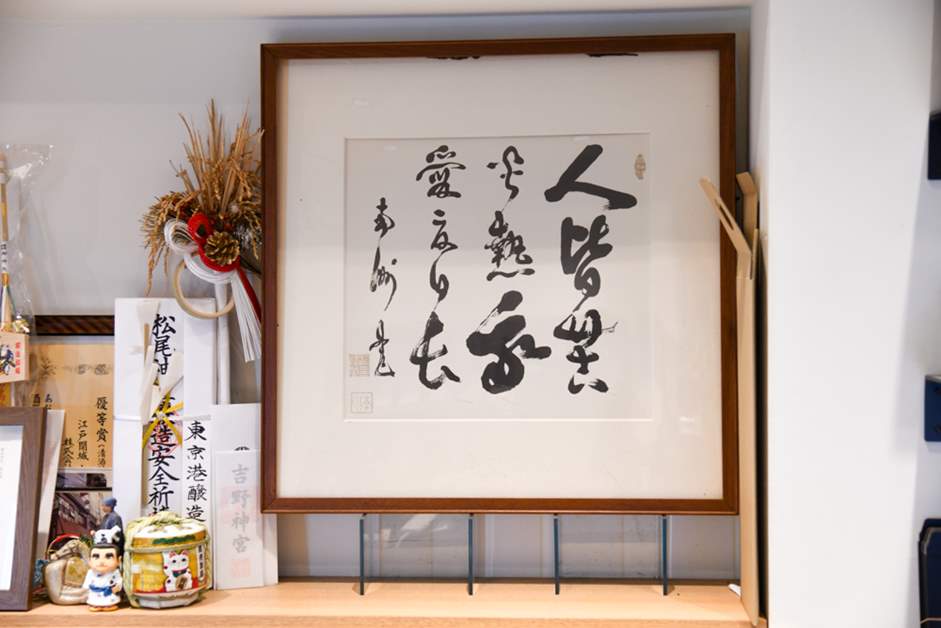 人皆苦
炎熱我
愛夏日長
南洲書
松尾神
造安全祈
東京港醸造
吉野神宮
優等賞
江戸開城